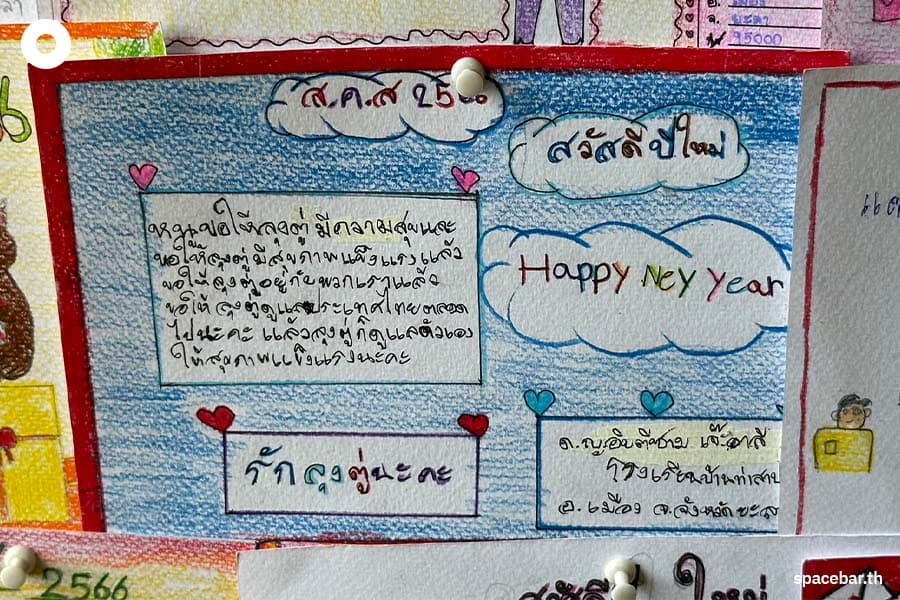 อ.
จ. ยะลา
95000
ส.ค.ส 25
สวัสดีปีใหม่
หนูขอให้ลุงตู่ มีความสุขและ
ขอให้ลุงตู่มีสุขภาพแข็งแรงแล้ว
ขอให้ลุงตู่อยู่กับพวกเราแล้ว
ขอให้ ลุงตู่ดูแลประเทศไทยตลอด
ไปนะคะ แล้วลุงตู่ก็ดูแลตัวเอง
ให้สุขภาพแข็งแรงนะคะ
Happy Ney year
รักลุงตู่นะคะ
ด.ญ.
โรงเรียนบ้านท่าสาป
อ.เมือง จ.จังหวัดยะล
2566
สวัสดี ใหม่
spacebar.th